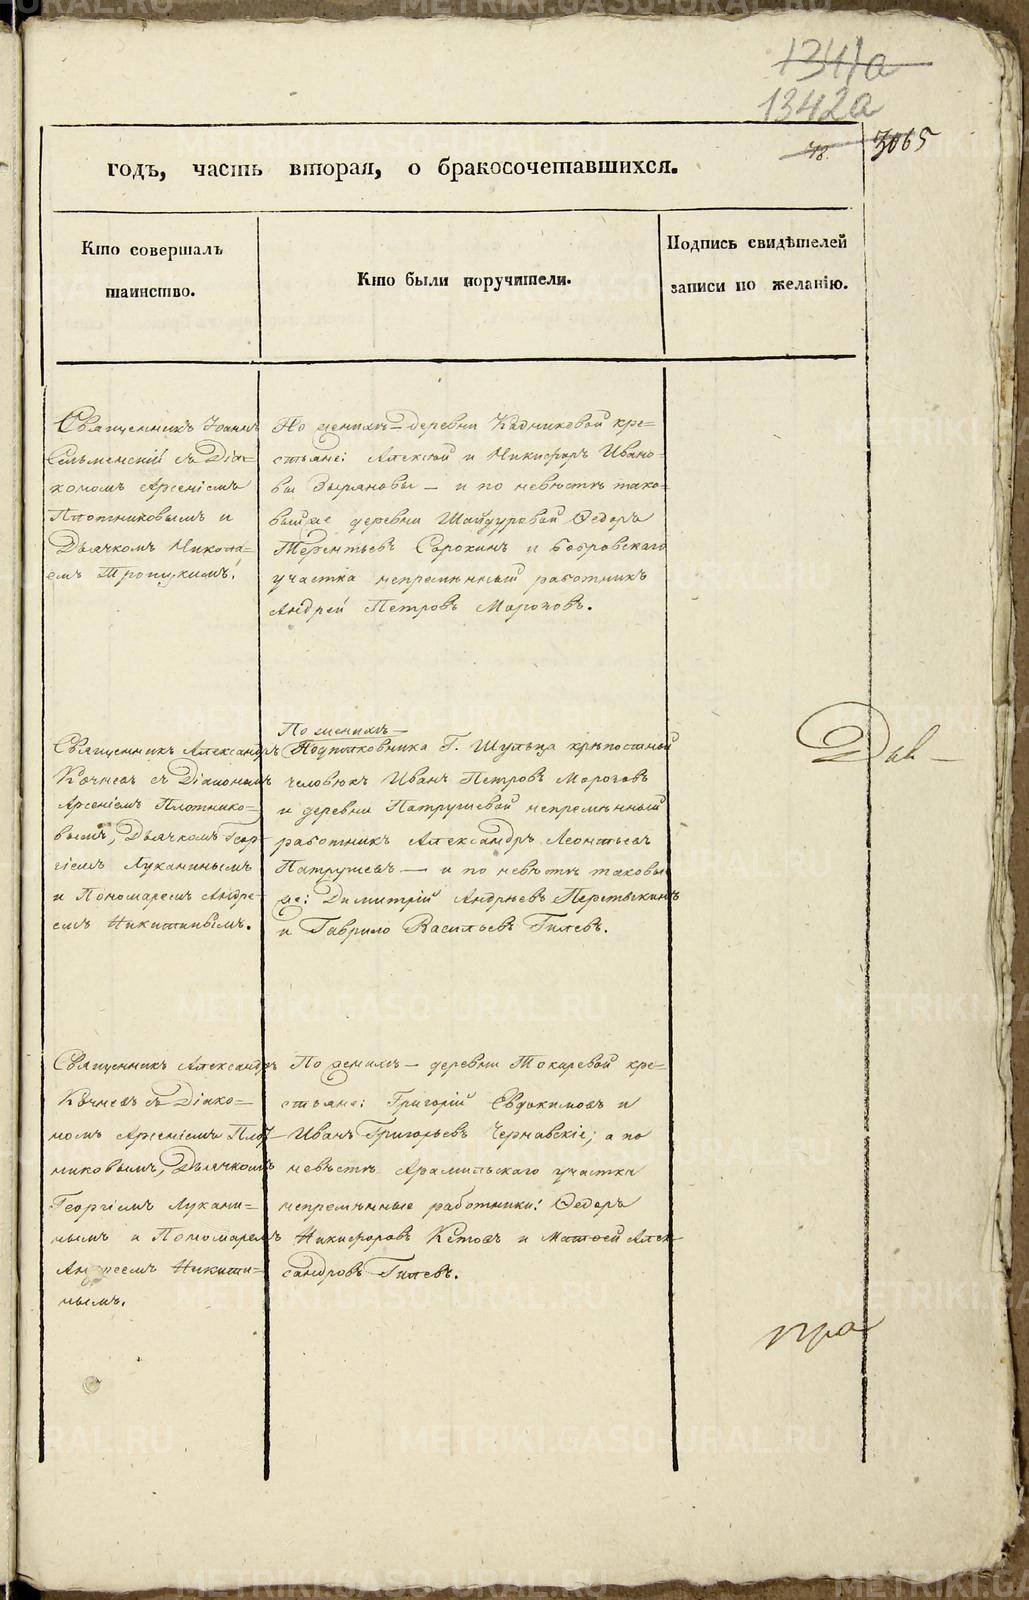 1341а
1342а
78.
3065
годъ, часть вторая, о бракосочетавшихся.
Кто совершалъ
таинство.
Кто были поручители.
Подпись свидѣтелей
записи по желанію.
Священникъ Іоаннъ
Сельменскій съ Діа-
кономъ Арсеніемъ
Плотниковымъ и
Дьячкомъ Никола-
емъ Троицкимъ.
По женихѣ — деревни Кадниковой кре-
стьяне: Алексѣй и Никифоръ Ивано-
вы Зыряновы — и по невѣстѣ тако-
выеже деревни Шайдуровой Ѳедоръ
Терентьевъ Сорокинъ и Бобровскаго
участка непремѣнный работникъ
Андрей Петровъ Морозовъ.
Священникъ Александръ
Кочневъ съ Діакономъ
Арсеніемъ Плотнико-
вымъ, Дьячкомъ Геор-
гіемъ Луканинымъ
и Пономаремъ Андре-
емъ Никитинымъ.
По женихѣ —
Подполковника Г. Шульца крѣпостной
человѣкъ Иванъ Петровъ Морозовъ
и деревни Патрушевой непремѣнный
работникъ Александръ Леонтьевъ
Патрушевъ — и по невѣстѣ таковы
же: Димитрій Андреевъ Перетыкинъ
и Гаврило Васильевъ Гилевъ.
Дав —
Священникъ Александръ
Кочневъ съ Діако-
номъ Арсеніемъ Плот-
никовымъ, Дьячкомъ
Георгіемъ Лукани-
нымъ и Пономаремъ
Андреемъ Никити-
нымъ.
По женихѣ — деревни Токаревой кре-
стьяне: Григорій Евдокимовъ и
Иванъ Григорьевъ Чернавскіе; а по
невѣстѣ Арамильскаго участка
непремѣнные работники: Ѳедоръ
Никифоровъ Кетовъ и Матѳей Алек-
сандровъ Гилевъ.
пра
METRIKI.GASO-URAL.RU